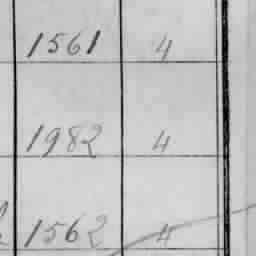 1561 4
1982 4
1562 4